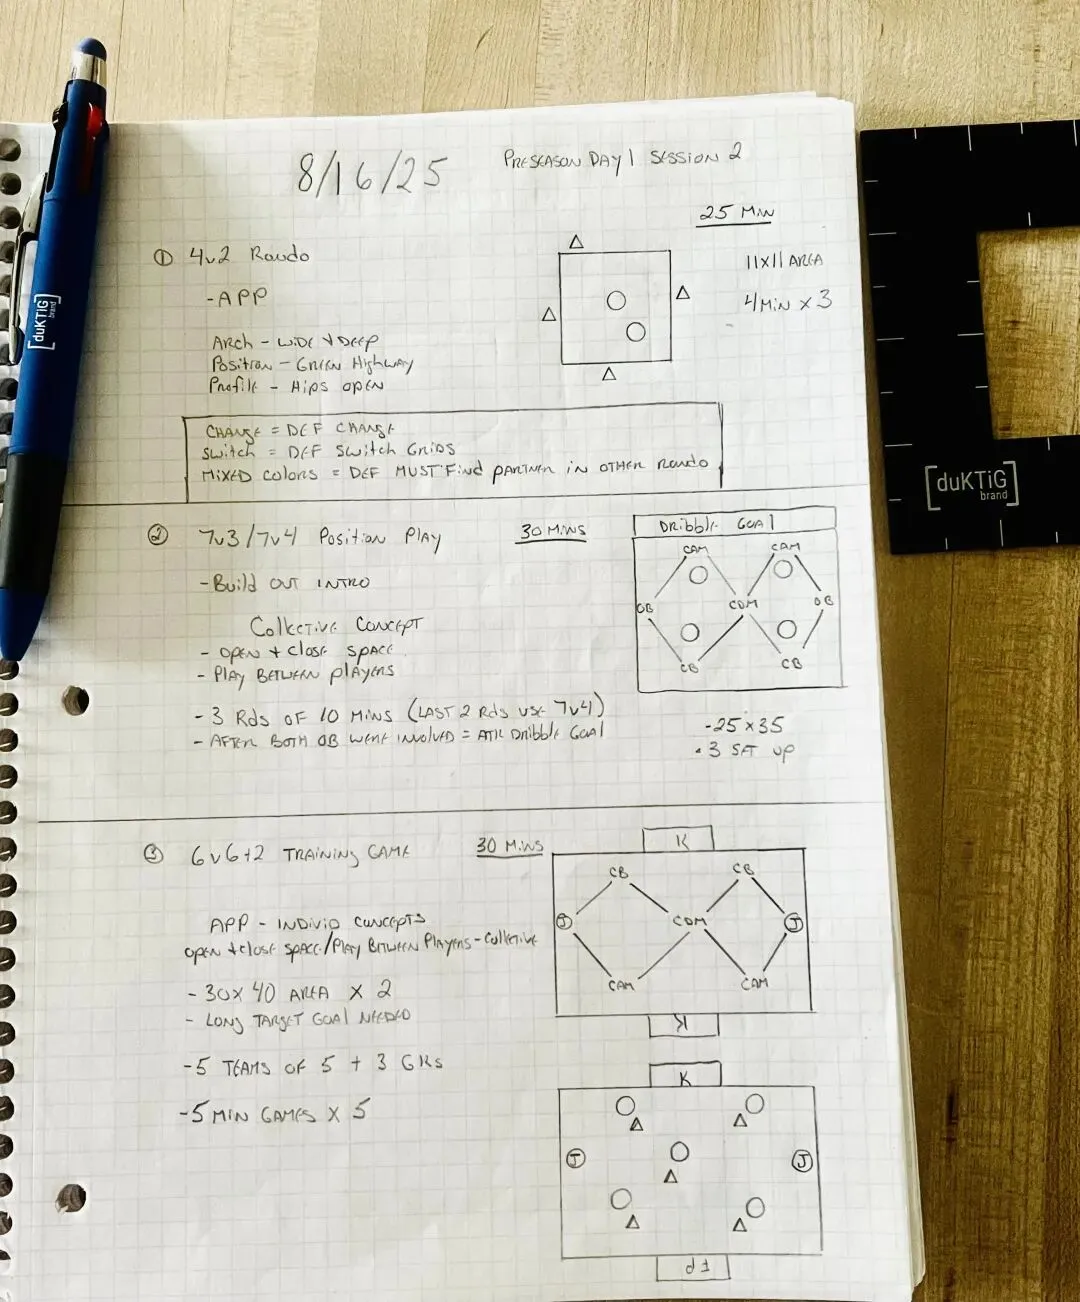 8/16/25
PRESEASON DAY 1 SESSION 2
25 MIN
① 4v2 Rondo
- APP
Arch - WIDE + DEEP
Position - GREEN Highway
Profile - Hips OPEN
11x11 AREA
4 MIN x 3
CHANGE = DEF CHANGE
SWITCH = DEF SWITCH GRIDS
MIXED COLORS = DEF MUST FIND PARTNER IN OTHER RONDO
② 7v3/7v4 Position Play
30 MINS
- Build OUT INTRO
Collective Concept
- OPEN + CLOSE SPACE
- PLAY BETWEEN PLAYERS
- 3 Rds OF 10 MINS (LAST 2 Rds USE 7v4)
- AFTER BOTH OB WERE INVOLVED = ATK Dribble GOAL
Dribble GOAL
CAM CAM
OB CDM OB
CB CB
- 25 x 35
• 3 SET UP
③ 6v6+2 TRAINING GAME
30 MINS
APP - INDIVID CONCEPTS
OPEN + CLOSE SPACE/PLAY BETWEEN PLAYERS - COLLECTIVE
- 30x40 AREA x 2
- LONG TARGET GOAL NEEDED
- 5 TEAMS OF 5 + 3 GKs
- 5 MIN GAMES x 5
K
CB CB
J CDM J
CAM CAM
K
K
J J
duKTiG
brand
[duKTiG]
brand